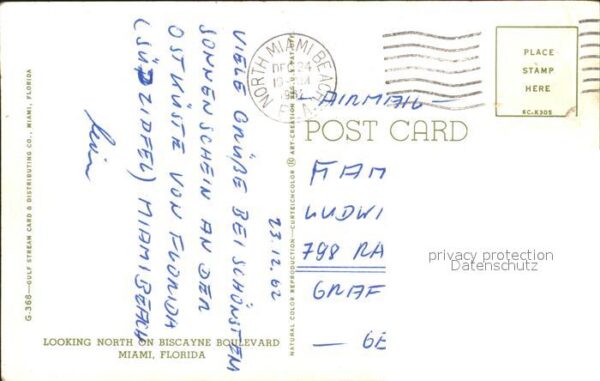 VIELE GRÜßE BEI SCHÖNSTEM
SONNENSCHEIN AN DER
OSTKÜSTE VON FLORIDA
(SÜDZIPFEL) MIAMI BEACH
23.12.62
NORTH MIAMI BEACH
DEC 24
1962
PLACE
STAMP
HERE
KC-K305
- AIRMAIL -
POST CARD
FAM
LUDWI
798 RA
GRAF
- GE
privacy protection
Datenschutz
LOOKING NORTH ON BISCAYNE BOULEVARD
MIAMI, FLORIDA
G-366—GULF STREAM CARD & DISTRIBUTING CO., MIAMI, FLORIDA
NATURAL COLOR REPRODUCTION—CURTEICHCOLOR ® ART-CREATION REG. U.S. PAT. OFF.